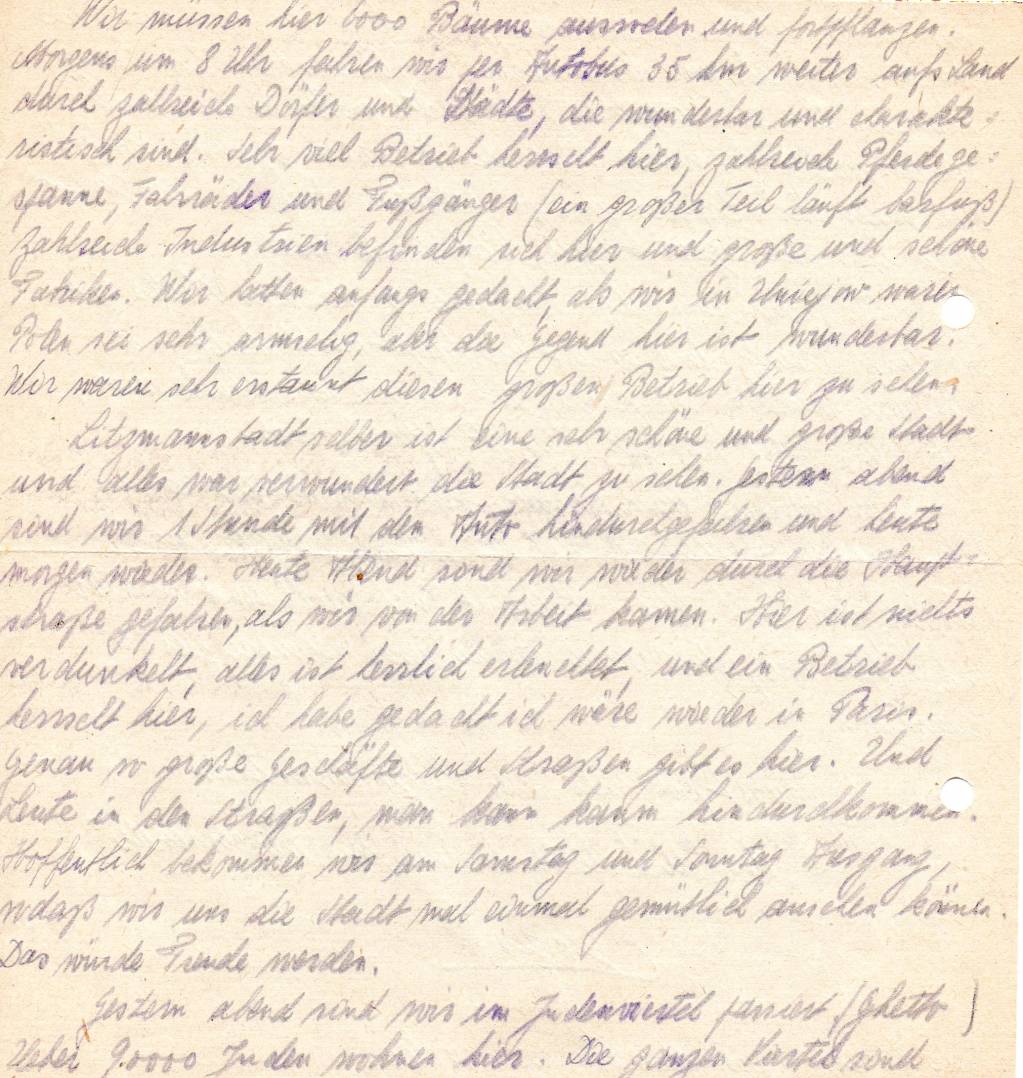 Wir müssen hier 6000 Bäume ausroden und fortpflanzen.
Morgens um 8 Uhr fahren wir per Autobus 35 km weiter aufs Land
durch zahlreiche Dörfer und Städte, die wunderbar und charakte=
ristisch sind. Sehr viel Betrieb herrscht hier, zahlreiche Pferdege=
spanne, Fahrräder und Fußgänger (ein großer Teil läuft barfuß)
Zahlreiche Industrien befinden sich hier und große und schöne
Fabriken. Wir hatten anfangs gedacht, als wir in Uniejow waren
Polen sei sehr armselig, aber die Gegend hier ist wunderbar.
Wir waren sehr erstaunt diesen großen Betrieb hier zu sehen
Litzmannstadt selber ist eine sehr schöne und große Stadt
und alles war verwundert die Stadt zu sehen. Gestern abend
sind wir 1 Stunde mit dem Auto hindurchgefahren und heute
morgen wieder. Heute Abend sind wir wieder durch die Haupt=
straße gefahren, als wir von der Arbeit kamen. Hier ist nichts
verdunkelt, alles ist herrlich erleuchtet, und ein Betrieb
herrscht hier, ich habe gedacht ich wäre wieder in Paris.
Genau so große Geschäfte und Straßen gibt es hier. Und
Leute in den Straßen, man kann kaum hindurchkommen.
Hoffentlich bekommen wir am Samstag und Sonntag Ausgang,
sodaß wir uns die Stadt mal einmal gemütlich ansehen können.
Das würde Freude werden.
Gestern abend sind wir im Judenviertel passiert (Ghetto)
Ueber 90000 Juden wohnen hier. Die ganzen Viertel sind